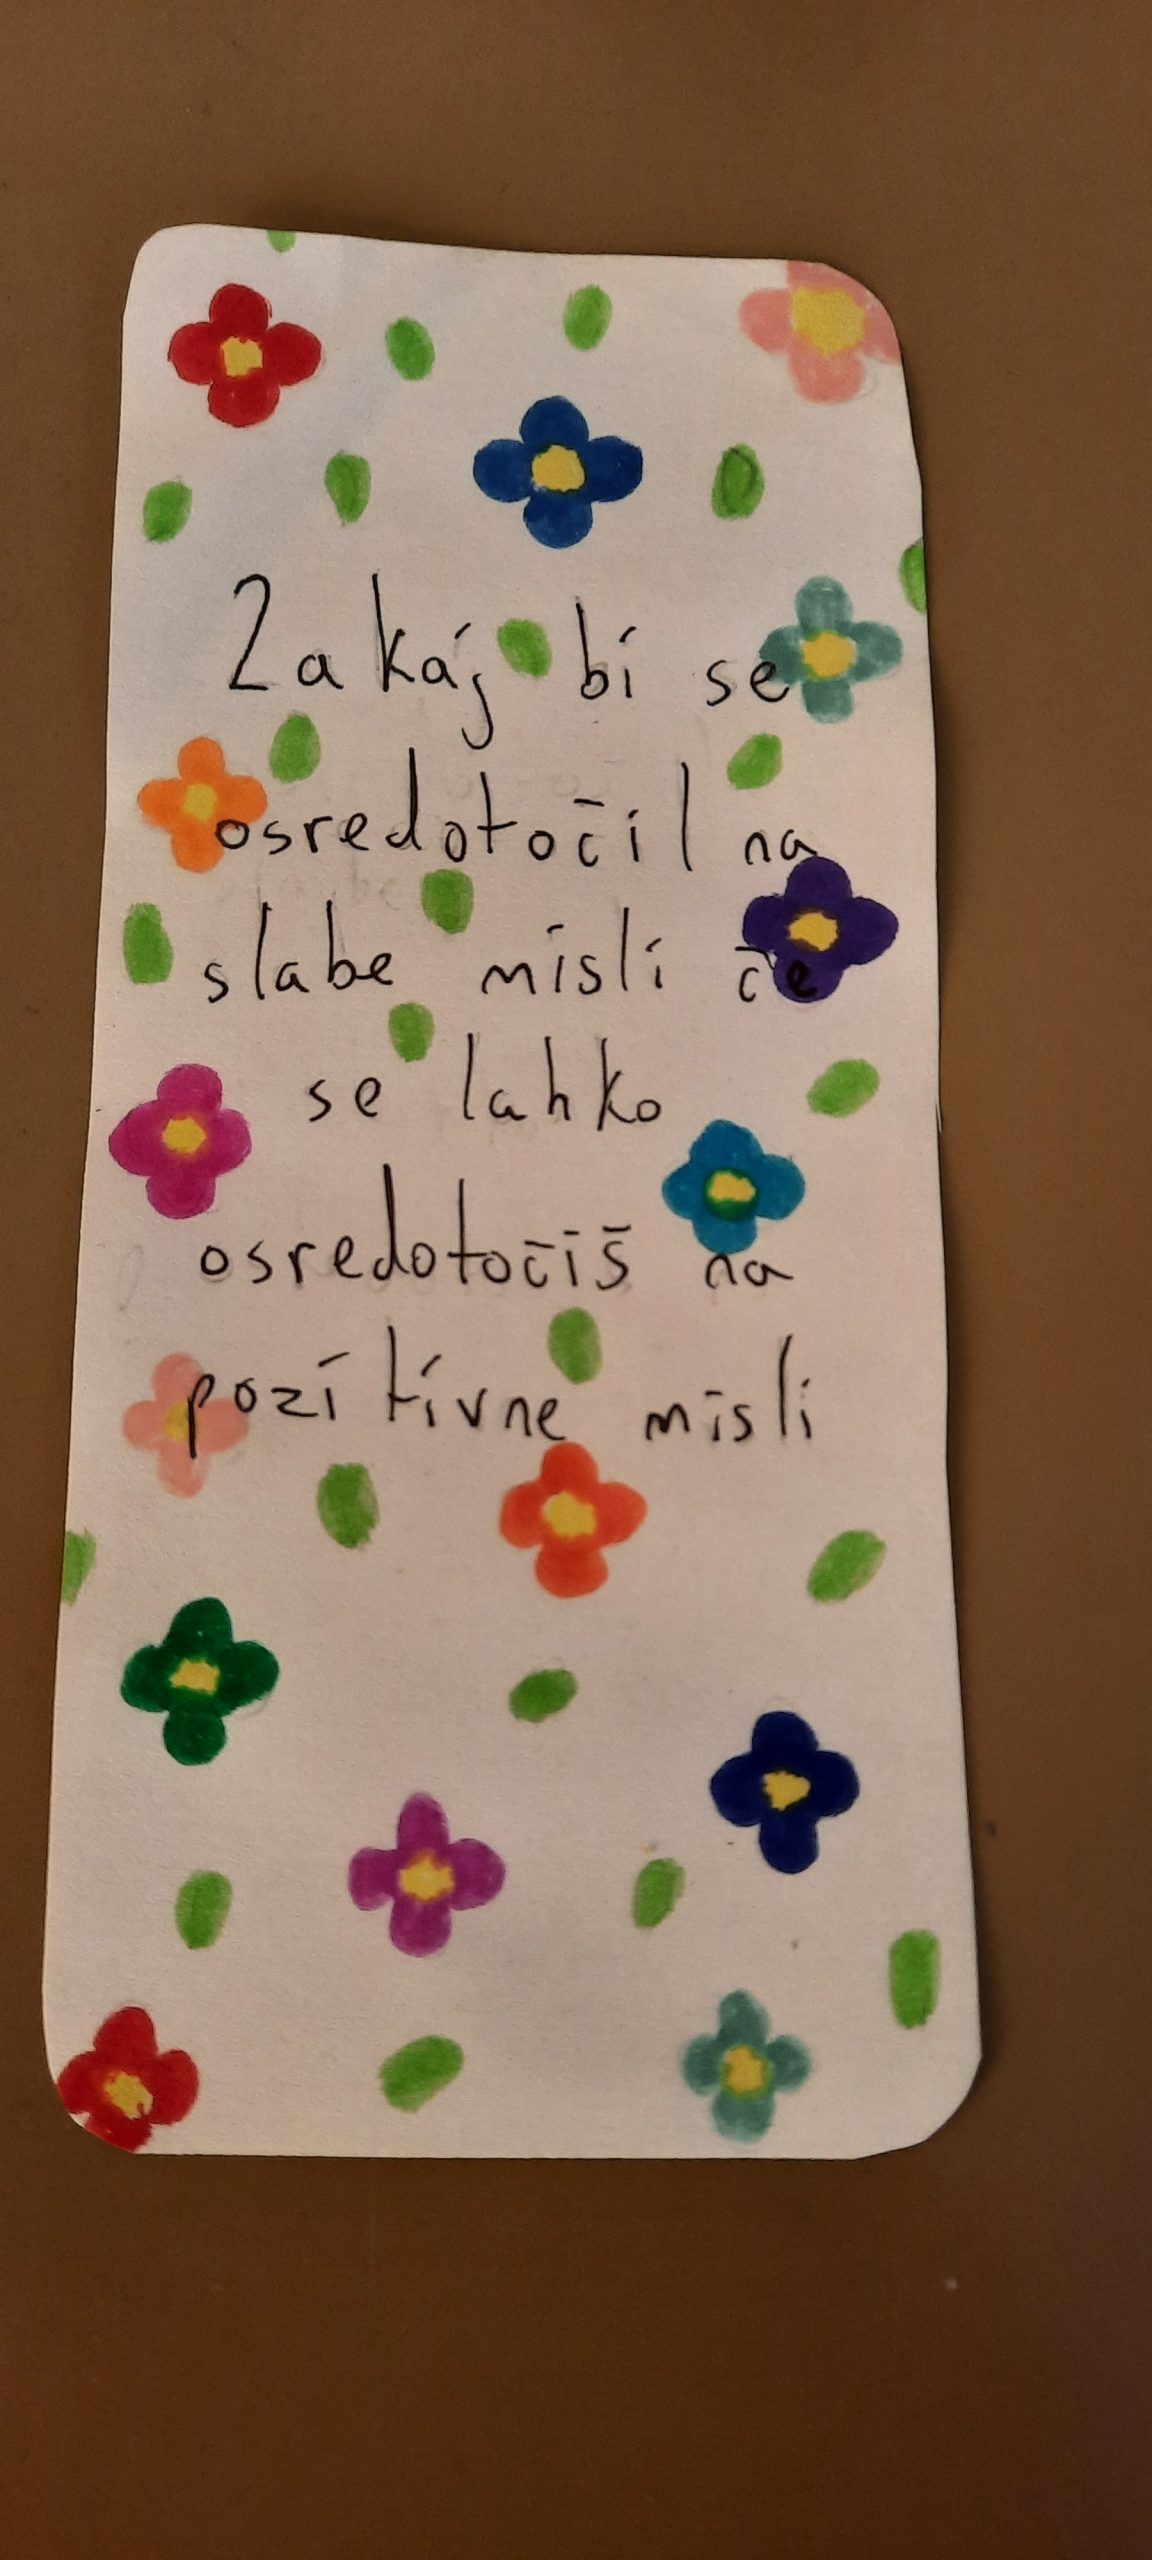 Zakaj bi se
osredotočil na
slabe misli če
se lahko
osredotočiš na
pozitivne misli